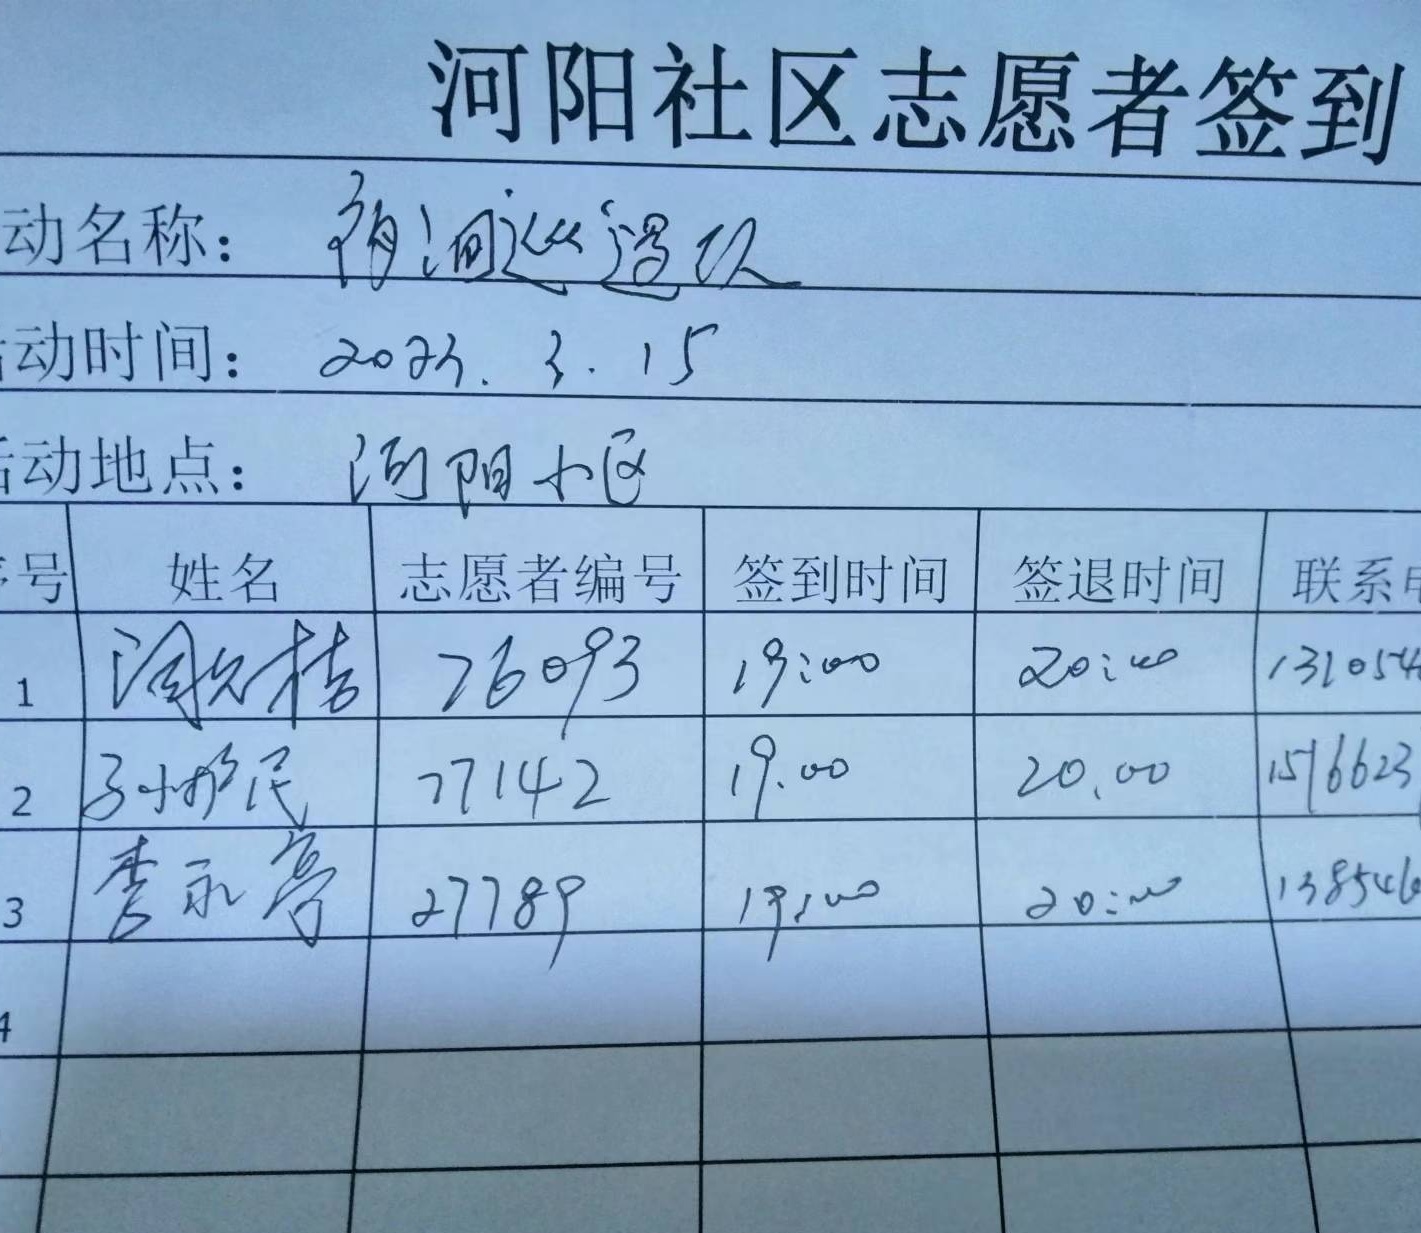 河阳社区志愿者签到
动名称： 夜间巡逻队
活动时间： 2023. 3. 15
活动地点： 河阳小区
序号 姓名 志愿者编号 签到时间 签退时间 联系电
1 76093 19:00 20:00 131054
2 77142 19.00 20.00 1516623
3 李永亮 27789 19:00 20:00 138546
4